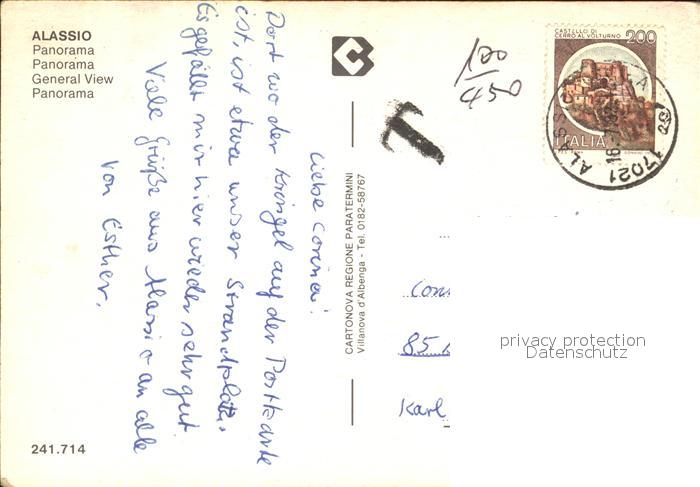 ALASSIO
Panorama
Panorama
General View
Panorama
Liebe Corina!
Dort wo der Kringel auf der Postkarte
ist, ist etwa unser Strandplatz.
Es gefällt mir hier wieder sehr gut.
Viele Grüße aus Alassio an alle
von Esther.
241.714
CARTONOVA REGIONE PARATERMINI
Villanova d'Albenga - Tel. 0182-58767
100
450
T
CASTELLO DI
CERRO AL VOLTURNO
200
ITALIA
17021 ALASSIO
Karl
privacy protection
Datenschutz